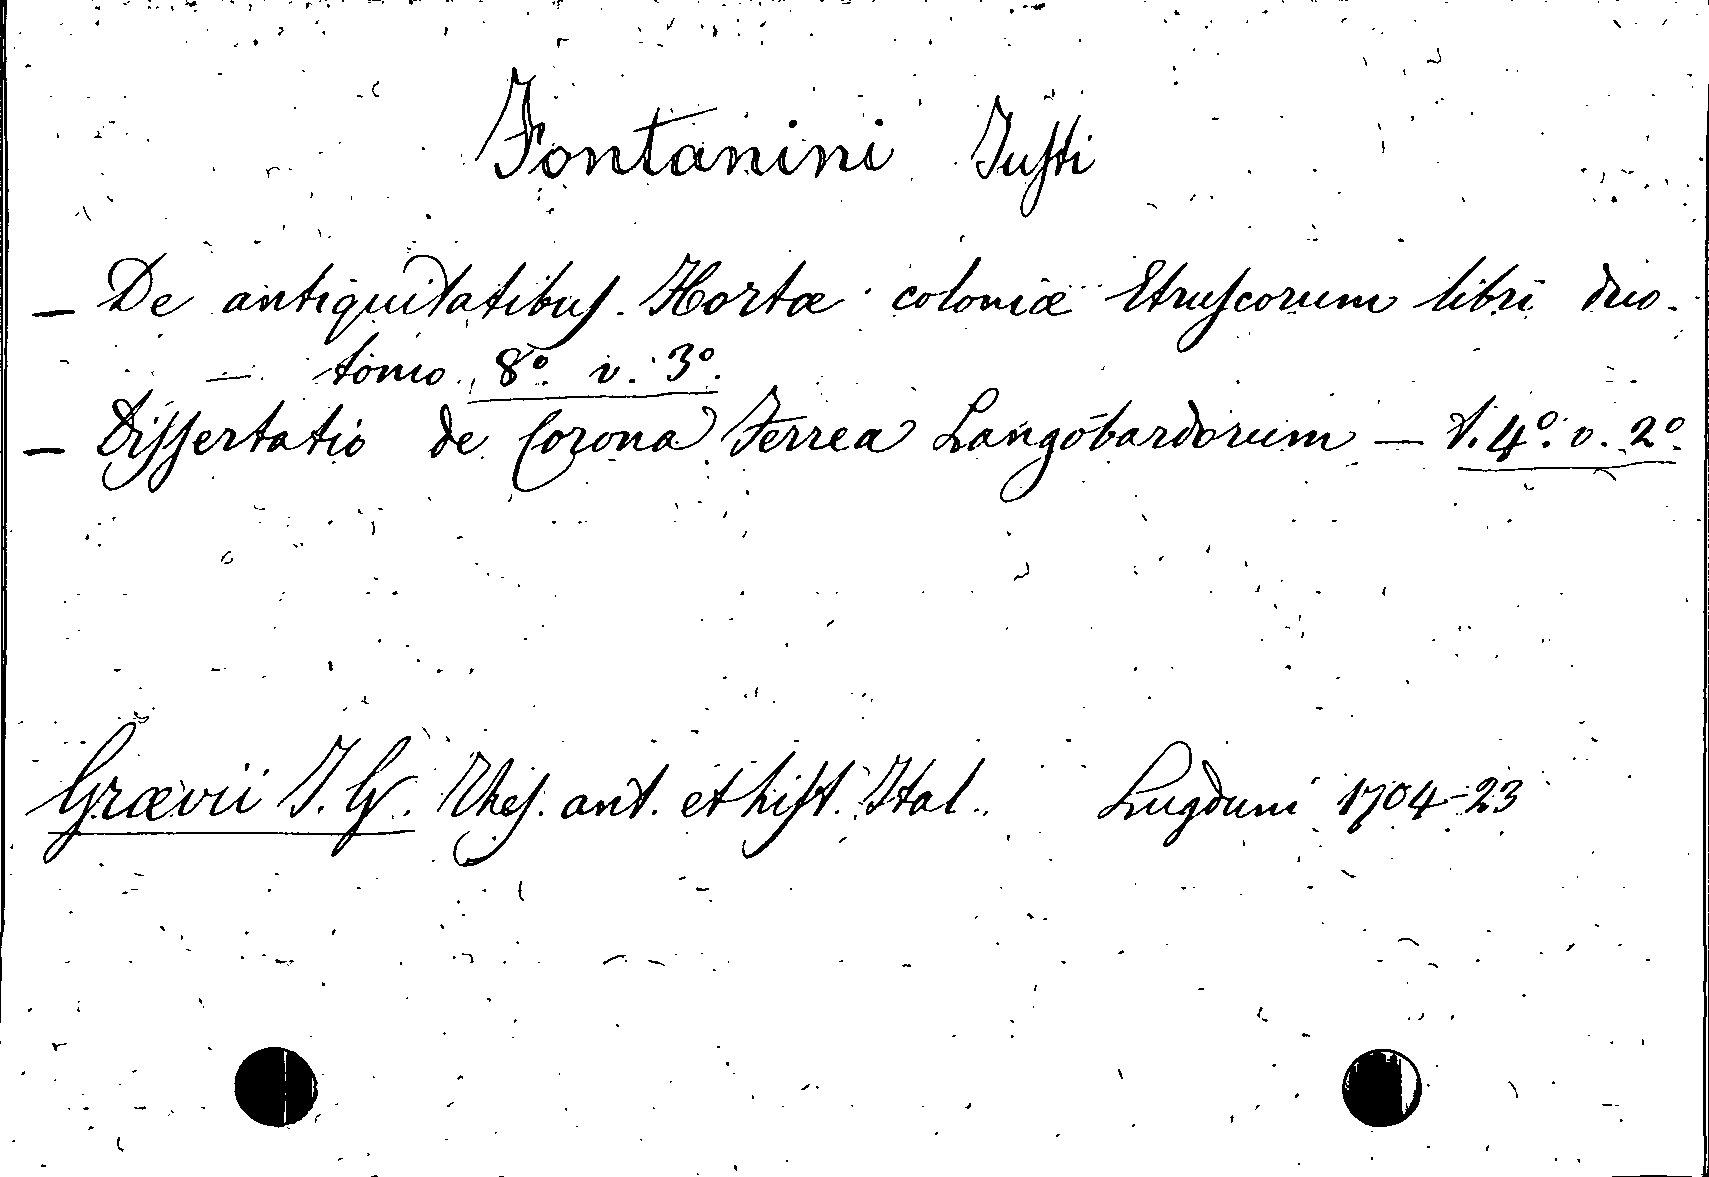 Fontanini Justi
— De antiquitatibus Hortæ coloniæ Etruscorum libri duo.
— tomo 8º. v. 3º.
— Dissertatio de Corona Ferrea Langobardorum — t. 4º. v. 2º.
Grævii J. G. Thes. ant. et hist. Ital. Lugduni 1704-23